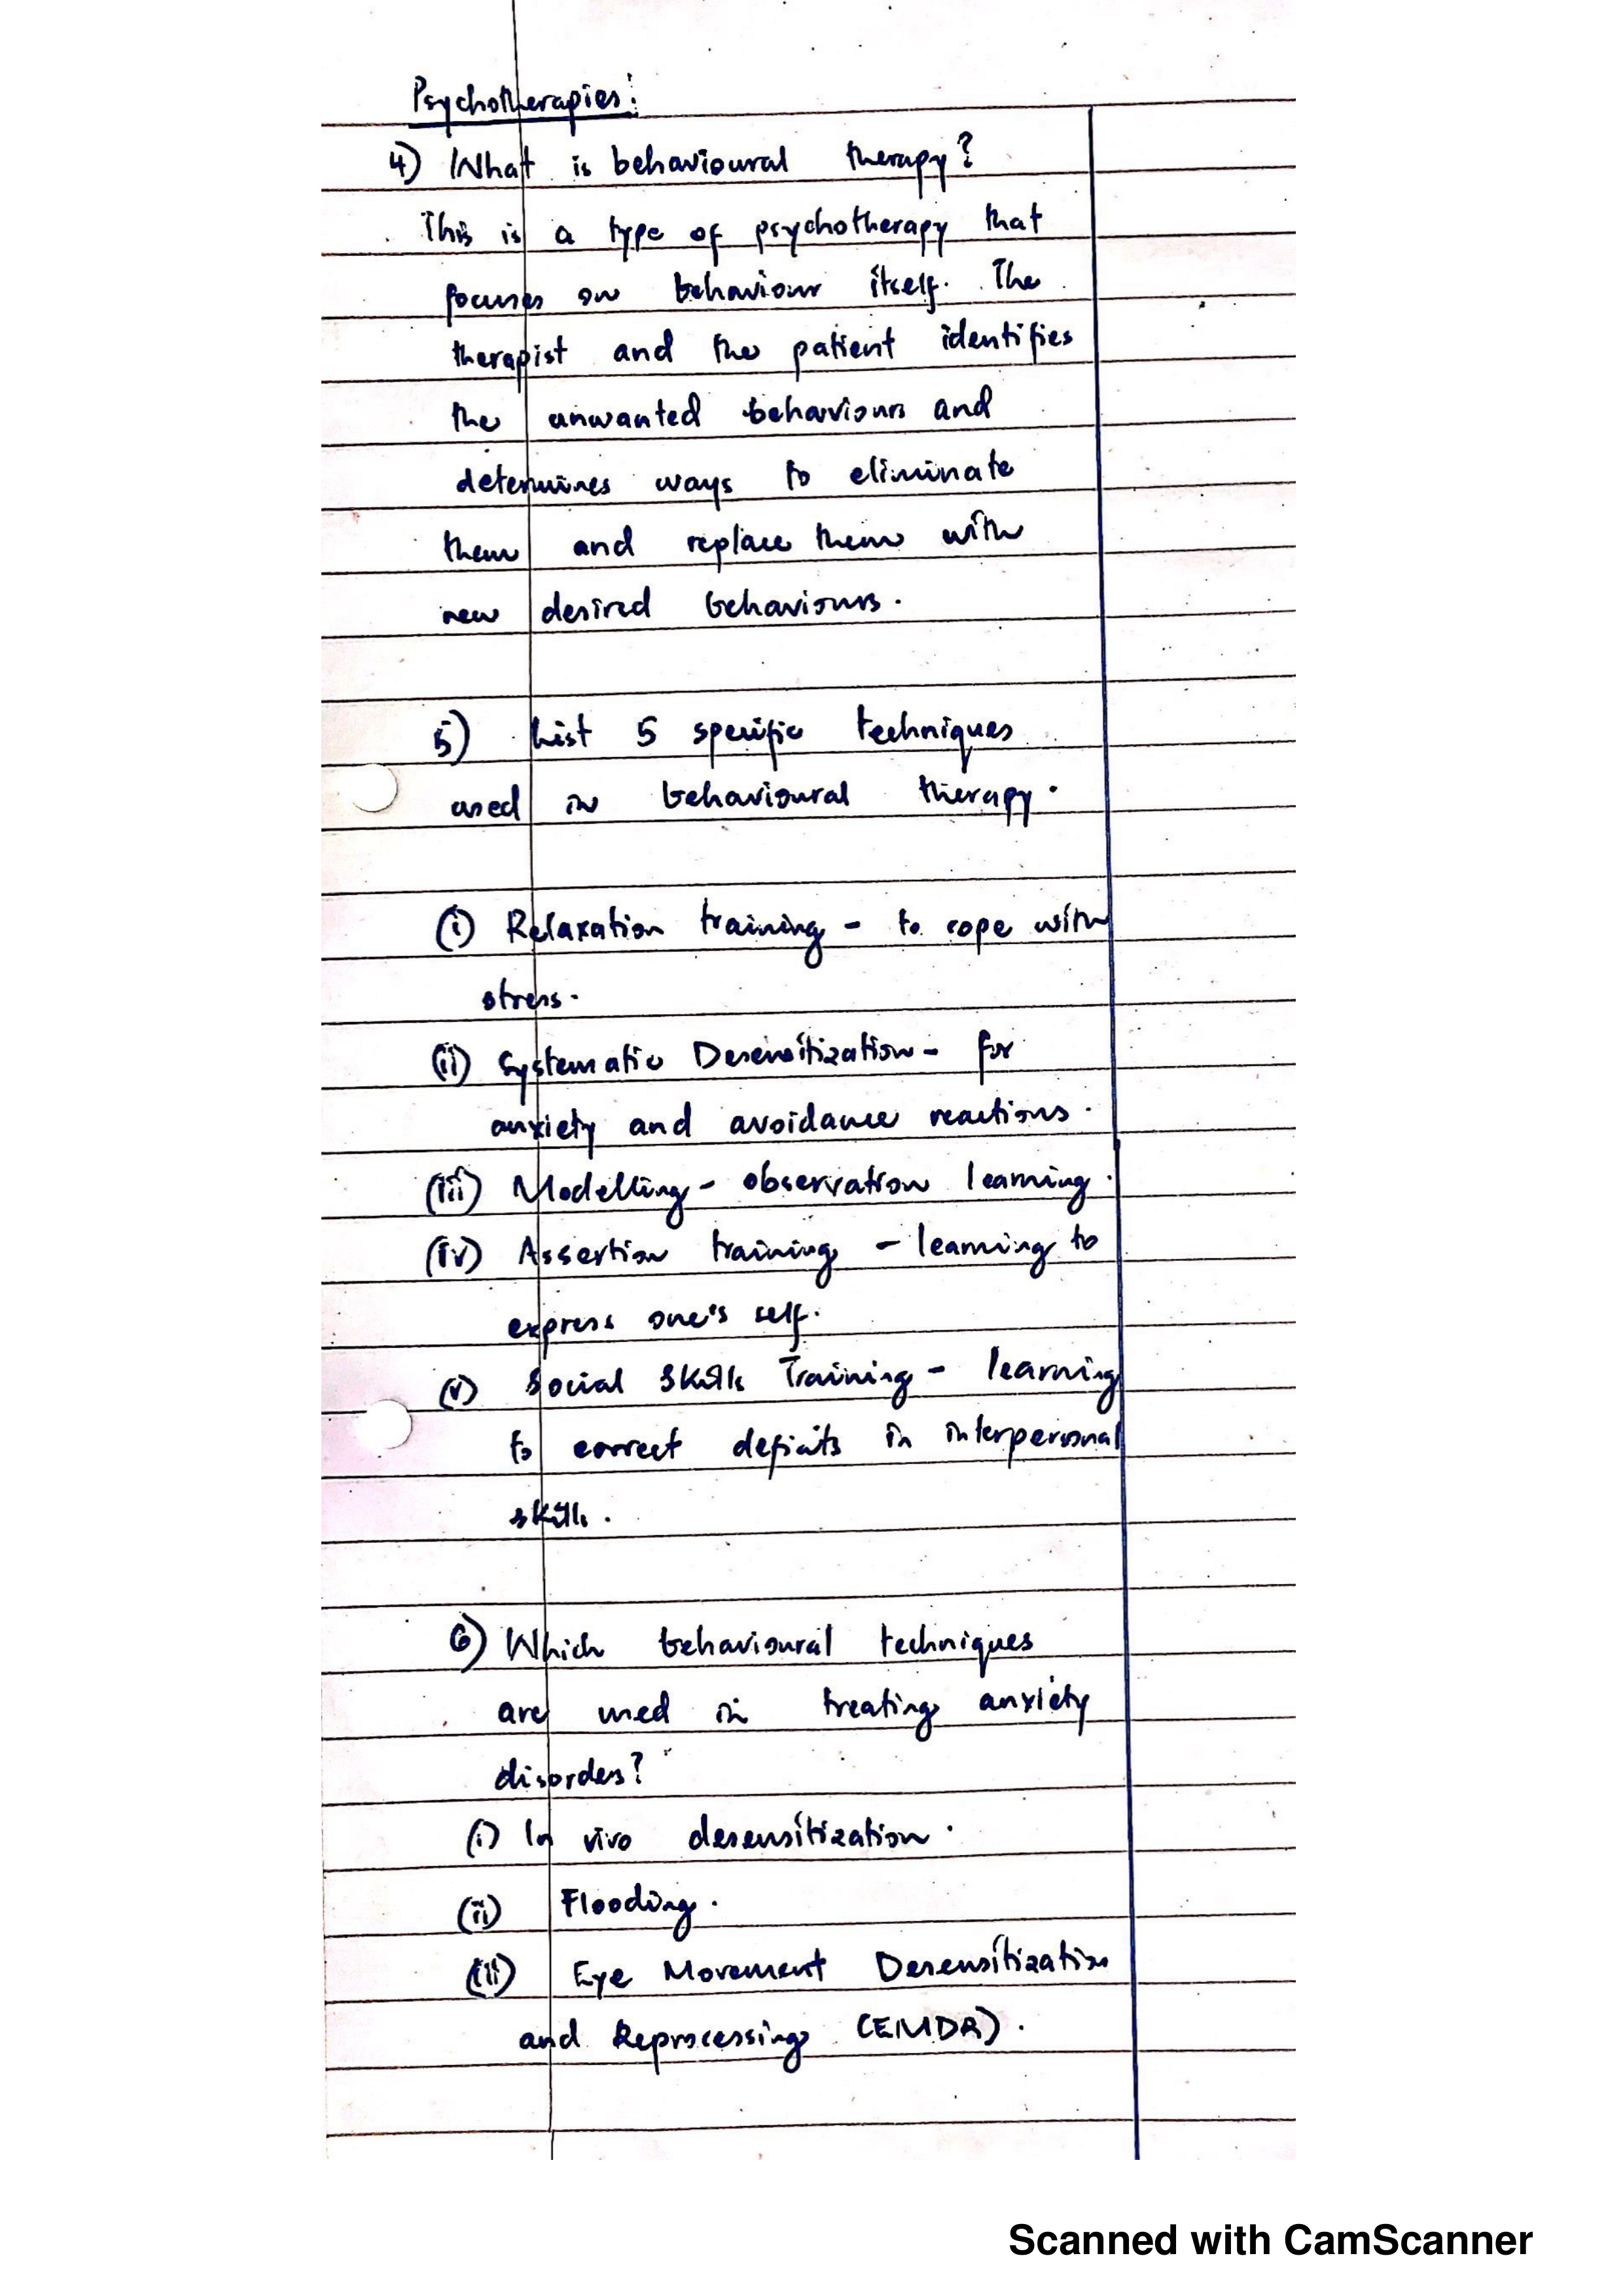 Psychotherapies:
4) What is behavioural therapy?
This is a type of psychotherapy that
focuses on behaviour itself. The
therapist and the patient identifies
the unwanted behaviours and
determines ways to eliminate
them and replace them with
new desired behaviours.
5) List 5 specific techniques
used in behavioural therapy.
(i) Relaxation training - to cope with
stress.
(ii) Systematic Desensitization - for
anxiety and avoidance reactions.
(iii) Modelling - observation learning.
(iv) Assertion training - learning to
express one's self.
(v) Social Skills Training - learning
to correct deficits in interpersonal
skills.
6) Which behavioural techniques
are used in treating anxiety
disorders?
(i) In vivo desensitization.
(ii) Flooding.
(iii) Eye Movement Desensitization
and Reprocessing (EMDR).
Scanned with CamScanner